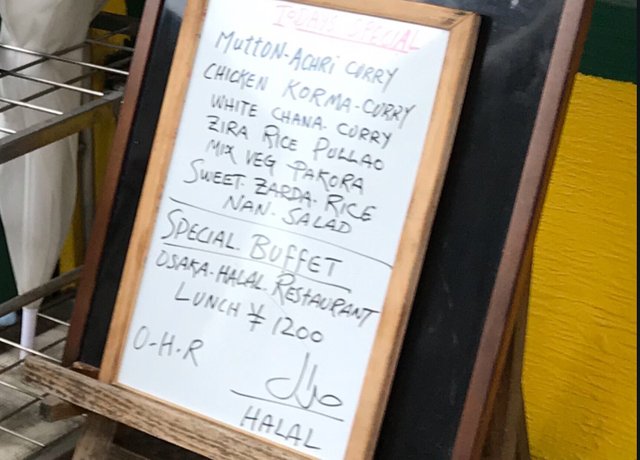 TODAYS SPECIAL
MUTTON-ACHRI CURRY
CHICKEN KORMA-CURRY
WHITE CHANA. CURRY
ZIRA RICE PULLAO
MIX VEG PAKORA
SWEET. ZARDA. RICE
NAN-SALAD
SPECIAL BUFFET
OSAKA-HALAL. RESTAURANT
LUNCH ¥ 1200
O-H-R
حلال
HALAL